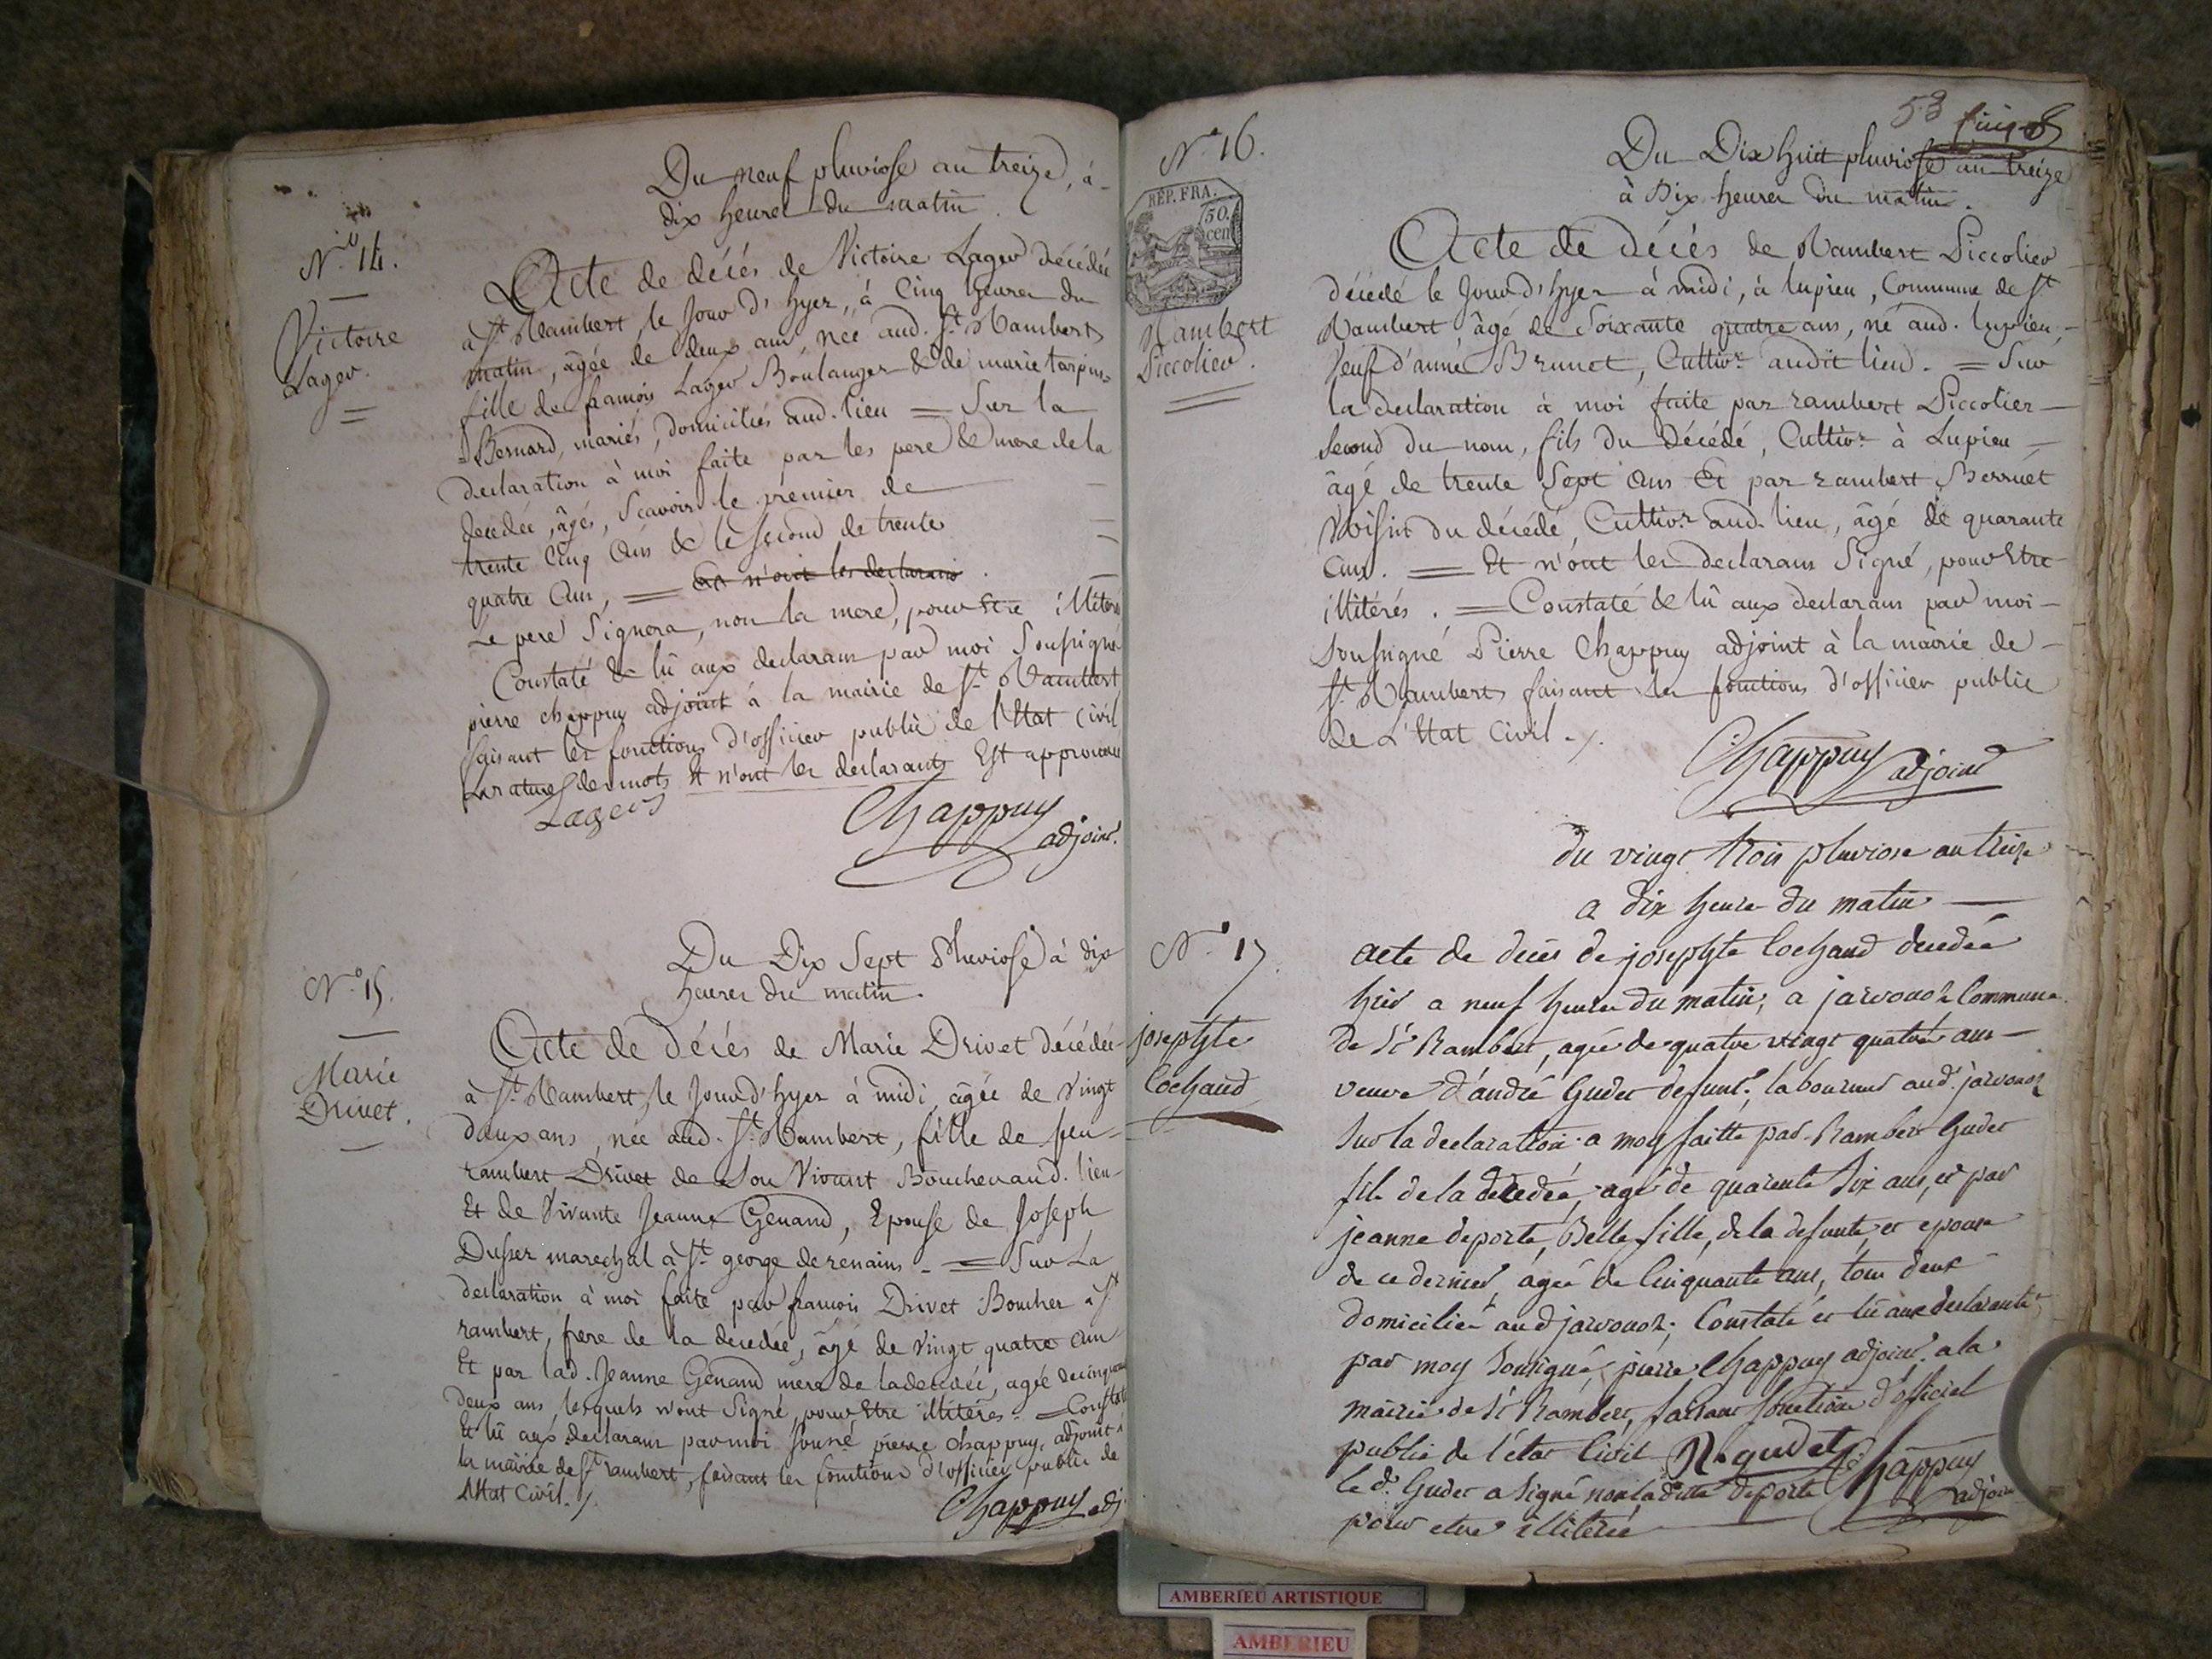 Du neuf pluviose an treize, à
dix heures du matin.
N.º 14.
Victoire
Lager.
Acte de décés de Victoire Lager décédée
à S.t Rambert, le jour d'hyer, à Cinq heures du
matin, âgée de deux ans, née aud. S.t Rambert,
fille de francois Lager Boulanger & de marie tarpin-
Bernard, mariés, domiciliés aud. lieu = Sur la
declaration à moi faite par les pere & mere de la
decédée, âgés, Scavoir le premier de
trente Cinq Ans & le second de trente
quatre Ans, = Et n'ont les declarans
Le pere Signera, non la mere, pour Etre illiterée
Constaté & lû aux declarans par moi Soussigné
pierre chappuy adjoint à la mairie de S.t Rambert
faisant les fonctions d'officier public de l'Etat Civil
La rature des mots Et n'ont les declarants Est approuvée
Lager
Chappuy
adjoint.
Du Dix Sept Pluviose à dix
heures du matin.
N.º 15.
Marie
Drivet.
Acte de Décés de Marie Drivet décédée
à S.t Rambert, le jour d'hyer à midi, âgée de Vingt
deux ans, née aud. S.t Rambert, fille de feu
rambert Drivet de son Vivant Boucher aud. lieu
Et de Vivante Jeanne Genand, Epouse de Joseph
Dusser marechal à S.t george de renains. = Sur La
declaration à moi faite par francois Drivet Boucher à S.t
rambert, frere de la decedée, âgé de Vingt quatre ans
Et par lad. Jeanne Genand mere de la decedée, agée de cinquante
deux ans, lesquels n'ont Signé, pour Etre illitérés. = Constaté
Et lû aux declarans par moi souss.né pierre chappuy, adjoint à
la mairie de S.t rambert, faisant les fonctions d'officier public de
l'Etat Civil.
Chappuy adj.
58
N.º 16.
RÉP. FRA.
50.
cen
Rambert
Piccolier.
Du Dix huit pluviose an treize
à Dix heures du matin.
Acte de Décés de Rambert Piccolier
décedé le jour d'hyer à midi, à lupieu, Commune de S.t
Rambert, âgé de Soixante quatre ans, né aud. lupieu,
Veuf d'anne Brunet, Cultiv.r audit lieu. = Sur
la declaration à moi faite par rambert Piccolier
second du nom, fils du Décédé, Cultiv.r à Lupieu
âgé de trente Sept Ans Et par rambert Berruet
Voisin du décédé, Cultiv.r aud. lieu, âgé de quarante
Ans. = Et n'ont les declarans Signé, pour Etre
illitérés. = Constaté & lû aux declarans par moi
Soussigné Pierre Chappuy adjoint à la mairie de
S.t Rambert, faisant les fonctions d'officier public
de L'Etat Civil.
Chappuy adjoint
du vingt trois pluviose an treize
a dix heure du matin
N.º 17.
josephte
Cochand
acte de decès de josephte Cochand decedée
hier a neuf heures du matin, a javornoz Commune
de S.t Rambert, agée de quatre vingt quatre ans
veuve d'andré Gudet defunt, laboureur aud. javornoz
Sur la declaration a moy faitte par Rambert Gudet
fils de la decedée, agé de quarente Six ans, et par
jeanne deporte, Belle fille, de la defunte, et epouse
de ce dernier, agée de Cinquante ans, tous deux
domicilié aud javornoz; Constaté et lû aux declarants,
par moy Soussigné, pierre Chappuy adjoint a la
mairie de S.t Rambert, faisant fonctions d'officiel
public de l'état Civil R. gudet Chappuy
le d. Gudet a Signé non la ditte deporte adjoint
pour etre illiterée
AMBERIEU ARTISTIQUE
AMBERIEU